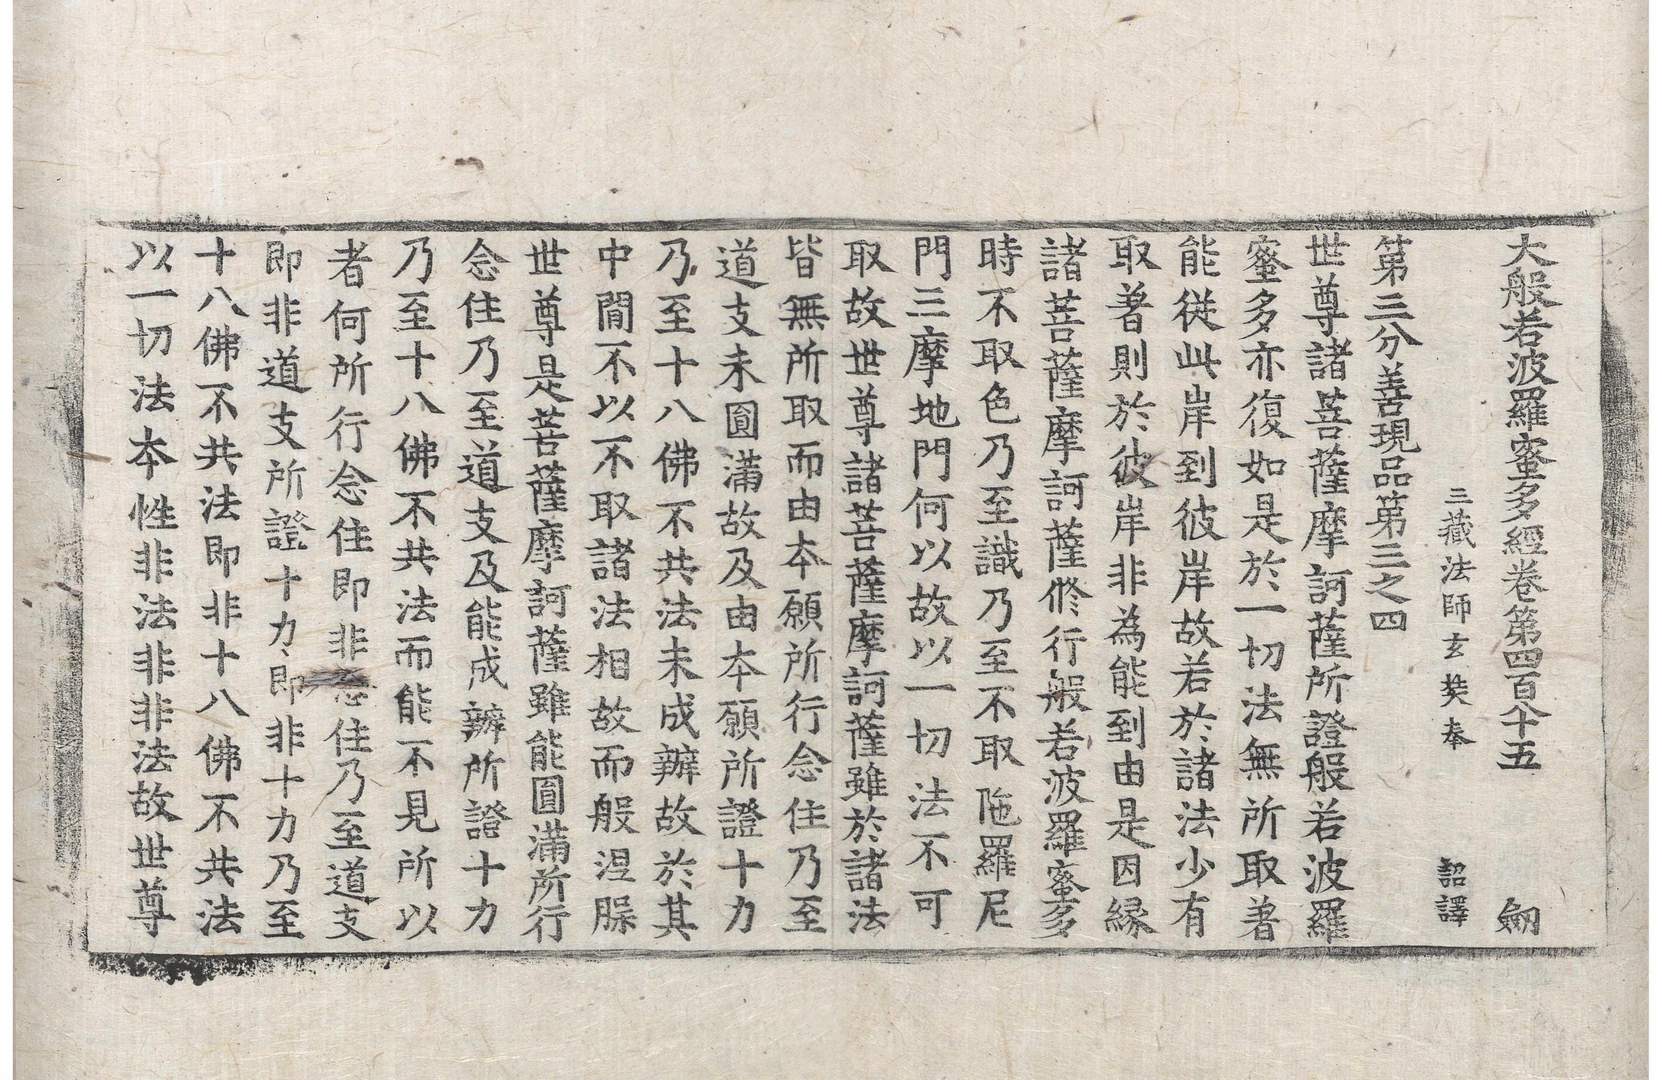 大般若波羅蜜多經卷第四百十五　劒
三藏法師玄奘奉　詔譯
第三分善現品第三之四
世尊諸菩薩摩訶薩所證般若波羅
蜜多亦復如是於一切法無所取著
能從此岸到彼岸故若於諸法少有
取著則於彼岸非為能到由是因緣
諸菩薩摩訶薩修行般若波羅蜜多
時不取色乃至識乃至不取陁羅尼
門三摩地門何以故以一切法不可
取故世尊諸菩薩摩訶薩雖於諸法
皆無所取而由本願所行念住乃至
道支未圓滿故及由本願所證十力
乃至十八佛不共法未成辦故於其
中閒不以不取諸法相故而般涅槃
世尊是菩薩摩訶薩雖能圓滿所行
念住乃至道支及能成辦所證十力
乃至十八佛不共法而能不見所以
者何所行念住即非念住乃至道支
即非道支所證十力即非十力乃至
十八佛不共法即非十八佛不共法
以一切法本性非法非非法故世尊